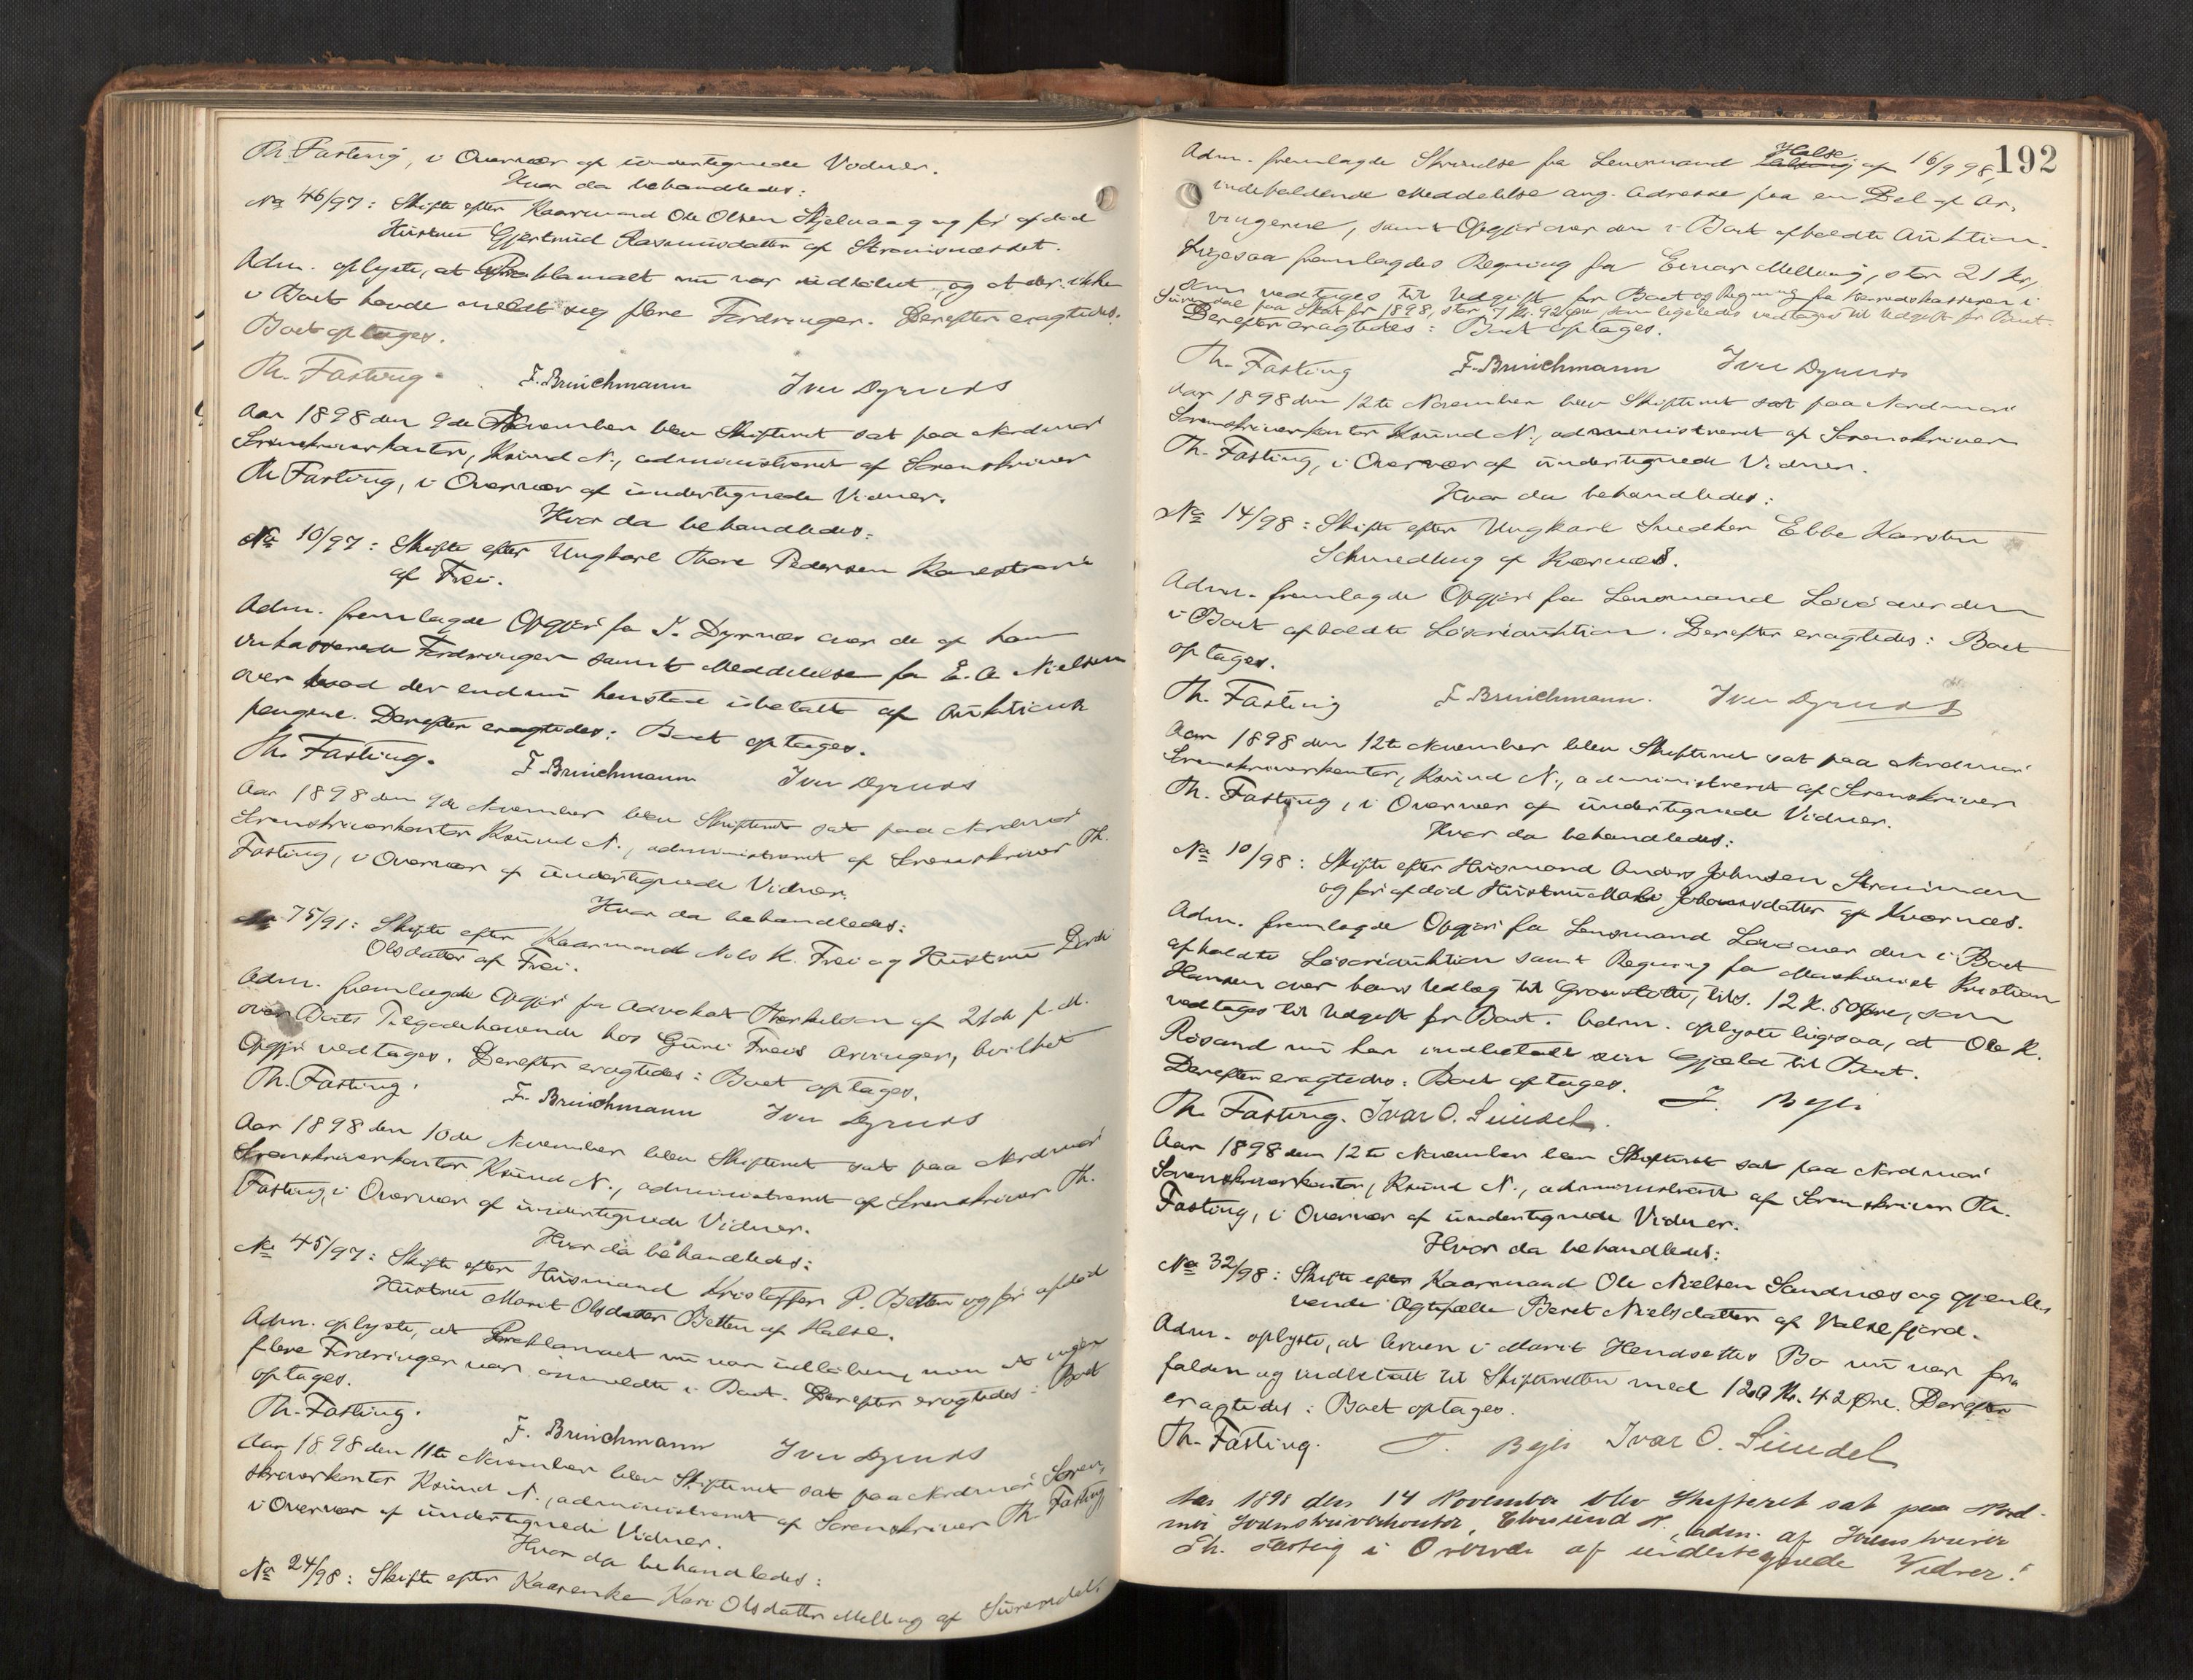 Th. Fasting, i Overvær af undertegnede Vidner.
Hvor da behandledes:
No 46/97: Skifte efter Kaarmand Ole Olsen Skjelvaag og før afdød
Hustru Gjertrud Rasmusdatter af Strømsnæsset.
Adm. oplyste, at Proklamaet nu var udløbet, og at der ikke
i Boet havde meldt sig flere Fordringer. Derefter eragtedes:
Boet optages.
Th. Fasting. F. Brinichmann Iver Dyrnes
Aar 1898 den 9de November blev Skifteret sat paa Nordmør
Sorenskriverkontor, Ksund N., administreret af Sorenskriver
Th Fasting, i Overvær af undertegnede Vidner.
Hvor da behandledes:
No 10/97: Skifte efter Ungkarl Thore Pedersen
af Frei.
Adm. fremlagde Opgjør fra I. Dyrnæs over de af ham
inkasserede Fordringer samt Meddelelse fra E. A. Nielsen
over hvad der endnu henstod ubetalt af Auktions
pengene. Derefter eragtedes: Boet optages.
Th. Fasting. F. Brinichmann Iver Dyrnes
Aar 1898 den 9de November blev Skifteret sat paa Nordmør
Sorenskriverkontor Ksund N., administreret af Sorenskriver Th.
Fasting, i Overvær af undertegnede Vidner.
Hvor da behandledes:
No 75/91: Skifte efter Kaarmand Nils K. Frei og Hustru
Olsdatter af Frei.
Adm. fremlagde Opgjør fra Advokat Therkelsen af 21de f. M.
over Boets Tilgodehavende hos Guri Freis Arvinger, hvilket
Opgjør vedtages. Derefter eragtedes: Boet optages.
Th. Fasting. F. Brinichmann Iver Dyrnes
Aar 1898 den 10de November blev Skifteret sat paa Nordmør
Sorenskriverkontor Ksund N., administreret af Sorenskriver Th.
Fasting, i Overvær af undertegnede Vidner.
Hvor da behandledes:
No 45/97: Skifte efter Husmand Kristoffer P. Betten og før afdød
Hustru Marit Olsdatter Betten af Halse.
Adm. oplyste, at Proklamaet nu var udløbet, men at ingen
flere Fordringer var anmeldte i Boet. Derefter eragtedes: Boet
optages.
Th. Fasting. F. Brinichmann Iver Dyrnes
Aar 1898 den 11te November blev Skifteret sat paa Nordmør Soren,
skriverkontor Ksund N., administreret af Sorenskriver Th Fasting,
i Overvær af undertegnede Vidner.
Hvor da behandledes:
No 24/98: Skifte efter Kaarenke Kari Olsdatter Melling af Surendal.
192
Adm. fremlagde Skrivelse fra Lensmand Halse af 16/9 98,
indeholdende Meddelelse ang. Adresse paa en Del af Ar,
vingerne, samt Opgjør over den i Boet afholdte Auktion.
Ligesaa fremlagdes Regning fra Einar Melling, stor 21 Kr,
som vedtages til Udgift for Boet og Regning fra Herredskasseren i
Surendal paa Skat for 1898, stor 7 Kr. 92 Øre som ligeledes vedtages til Udgift for Boet.
Derefter eragtedes: Boet optages.
Th. Fasting F. Brinichmann Iver Dyrnes
Aar 1898 den 12te November blev Skifteret sat paa Nordmør
Sorenskriverkontor Ksund N., administreret af Sorenskriver
Th. Fasting, i Overvær af undertegnede Vidner.
Hvor da behandledes:
No 14/98: Skifte efter Ungkarl Snedker Ebbe Karsten
Schmedling af Kvernes.
Adm. fremlagde Opgjør fra Lensmand Løvø over den
i Boet afholdte Løsøreauktion. Derefter eragtedes: Boet
optages.
Th. Fasting F. Brinichmann. Iver Dyrnes
Aar 1898 den 12te November blev Skifteret sat paa Nordmør
Sorenskriverkontor, Ksund N., administreret af Sorenskriver
Th. Fasting, i Overvær af undertegnede Vidner.
Hvor da behandledes:
No 10/98: Skifte efter Husmand Anders Johnsen
og før afdød Hustru Johansdatter af Kvernæs.
Adm. fremlagde Opgjør fra Lensmand Løvø over den i Boet
afholdte Løsøreauktion samt Regning fra Maskinist Kristian
Hansen over hans Udlæg til Gravstøtte, tils. 12 K. 50 Øre, som
vedtages til Udgift for Boet. Adm. oplyste ligesaa, at Ole K.
Røsand nu har indbetalt sin Gjæld til Boet.
Derefter eragtedes: Boet optages.
Th. Fasting. Ivar O. Sundel. J. Bøgli
Aar 1898 den 12te November blev Skifteret sat paa Nordmør
Sorenskriverkontor, Ksund N., administreret af Sorenskriver Th.
Fasting, i Overvær af undertegnede Vidner.
Hvor da behandledes:
No 32/98: Skifte efter Kaarmand Ole Nielsen Sandnæs og gjenle,
vende Ægtefælle Beret Nielsdatter af Valsøfjord.
Adm. oplyste, at Arven i Marit Hendsettes Bo nu var for,
falden og indbetalt til Skifteretten med 120 Kr. 42 Øre. Derefter
eragtedes: Boet optages.
Th. Fasting. J. Bøgli Ivar O. Sundel
Aar 1898 den 14 November blev Skifteret sat paa Nord-
mør Sorenskriverkontor, Chrsund N., adm. af Sorenskriver
Th. Fasting i Overvær af undertegnede Vidner: